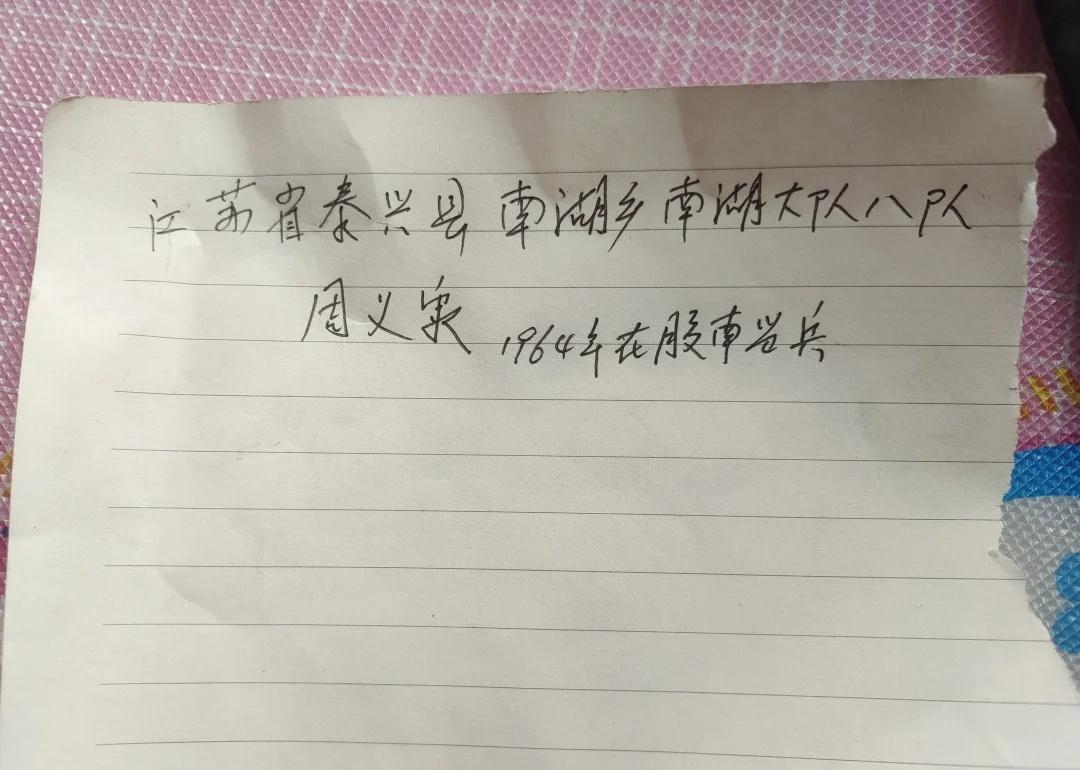 江苏省泰兴县南湖乡南湖大队八队
周义泉 1964年在南当兵